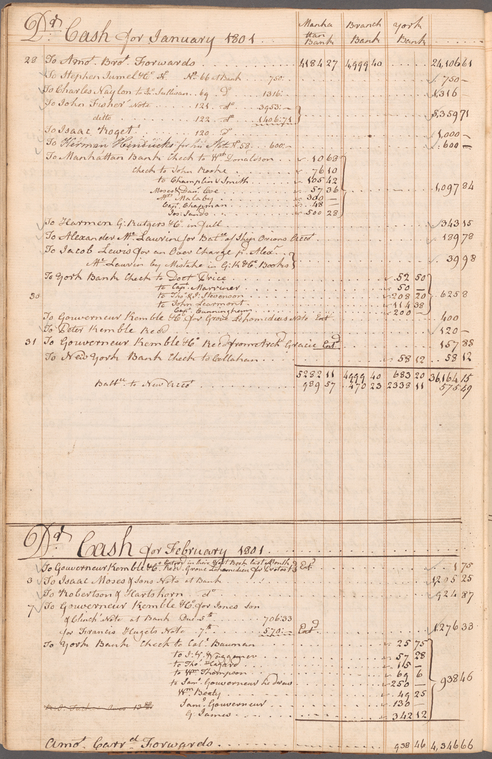 Manha Branch York
ttan
Dr. Cash for January 1801. Bank Bank Bank
28 To Amot. Brot. Forwards 4184 27 4999 40 24,106 61
To Stephen Jumel & Co. No. 66 at Bank 750. 750
To Charles Naylon to Sullivan. 69 Do. 1316. 1316
To John Fisher's Note 121. do. 3953.
ditto 122. do. 1406.71 5,359 71
To Isaac Roget 120 do. 1,000
To Herman Hendricks for his Note 58. 600 600
To Manhattan Bank Check to Wm. Donaldson 10 68
Check to John Rooke 76 10
to Champlin & Smith 105 42
Moses & Danl. Coe 57 36 1,097 84
Mr. Malaby 300
Capt. Chapman 48
Jos: Sands 500 28
To Harmen G. Rutgers & Co. in full 343 15
To Alexander McLaurin for Balce. of Ship Orions Acct. 189 78
To Jacob Lewis for an Over Charge pr. Aled
McLaurin by Mistake in G: K & Co. Books 39 98
To York Bank Check to Doctr. Price 52 50
to Capt. Marriner 50
30 to Thos. & J. Stevenson 208 20 625 8
to John Learmont 114 38
Capt. Cunningham 200
To Gouverneur Kemble & Co. for Note Entd. 400
To Peter Kemble Recd. 120
31 To Gouverneur Kemble & Co. Recd. from Archd. Gracie Entd. 157 85
To New York Bank Check to Callahan 58 12 58 12
5282 11 4999 40 683 20 36,164 15
Balce. to New Acct. 989 57 273 23 2338 11 575 49
Dr. Cash for February 1801.
To Gouverneur Kemble & Co. last Month Entd. 175
3 To Isaac Moses & Sons Note at Bank 1295 25
To Robertson & Hartshorn do. 924 87
7 To Gouverneur Kemble & Co. for Jones son
& Clinch Note at Bank 706.33
for Francis Huger's Note 570. Entd. 1276 33
To York Bank Check to Colo. Bauman 25 75
to J. G. Wagoner 57 28
to Thos. Hazard 15
to Wm. Thompson 69 6
to Saml. Gouverneur 253 938 46
Wm. Beaty 49 25
Saml. Gouverneur 130
G James 342 12
Amot. Carrd. Forwards 938 46 4,546 66